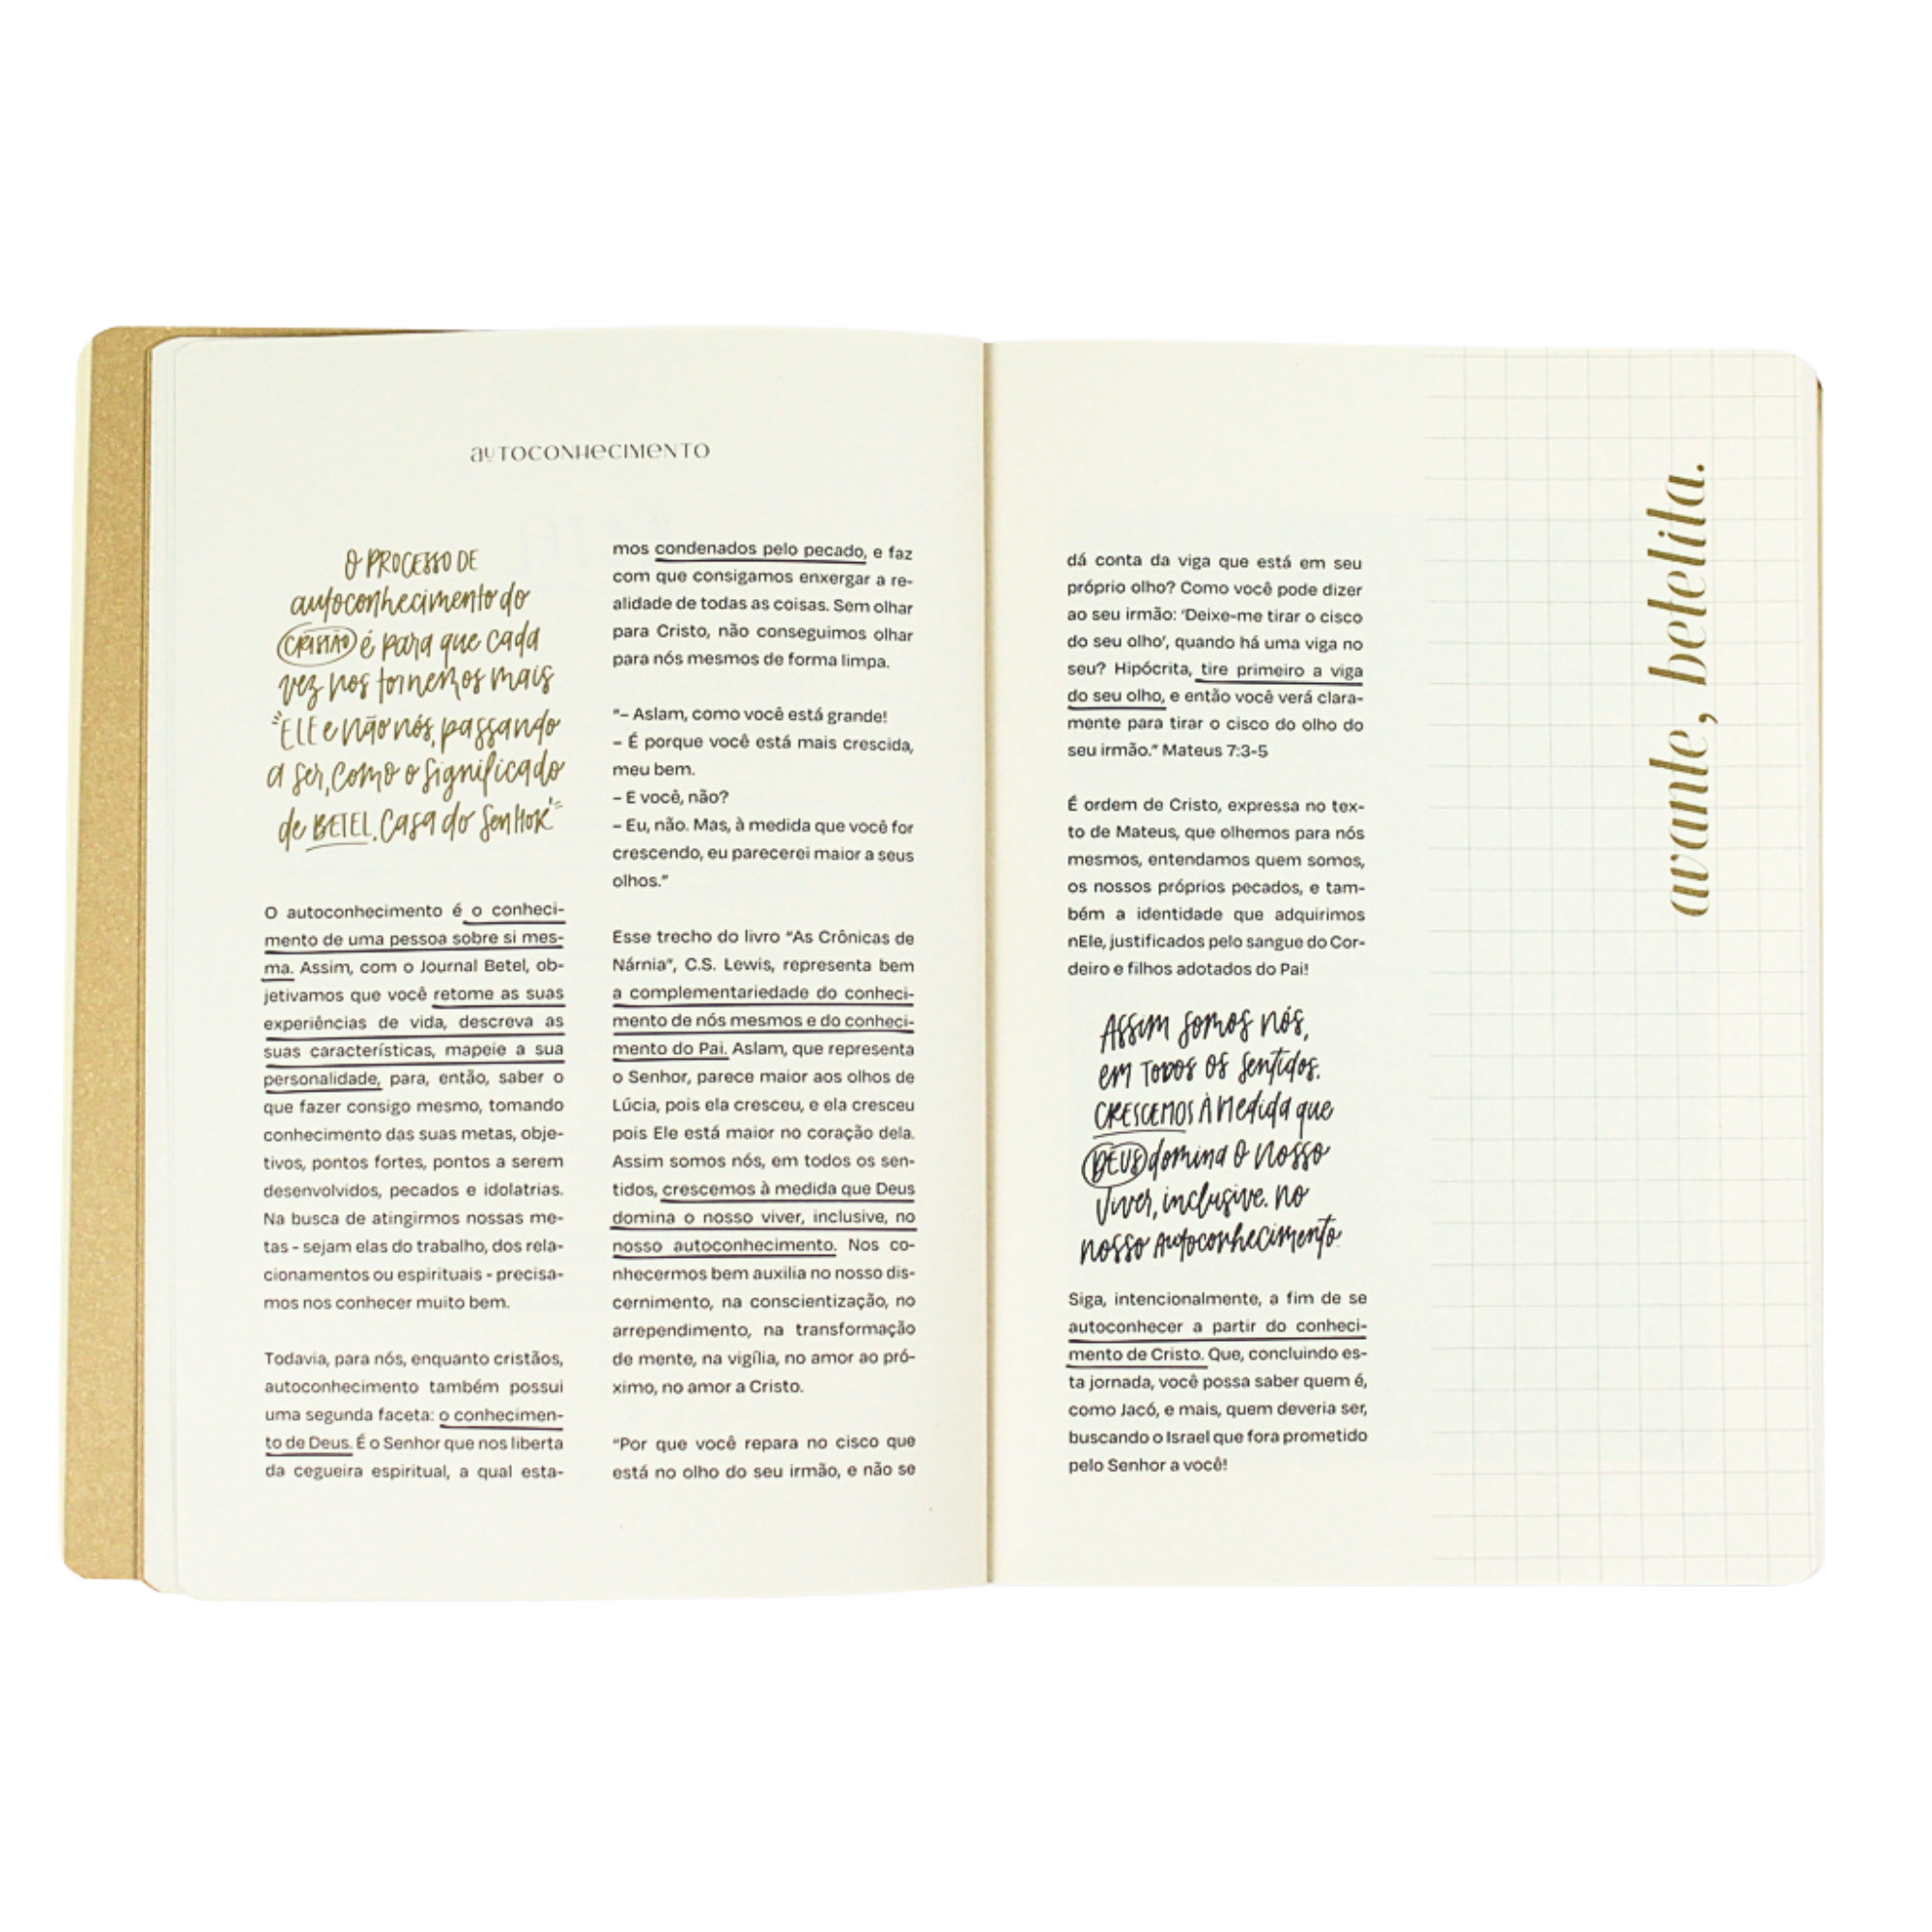 AUTOCONHECIMENTO
O PROCESSO DE
autoconhecimento do
CRISTÃO é para que cada
vez nos tornemos mais
"ELE e não nós, passando
a ser, como o significado
de BETEL. Casa do Senhor"
O autoconhecimento é o conheci-
mento de uma pessoa sobre si mes-
ma. Assim, com o Journal Betel, ob-
jetivamos que você retome as suas
experiências de vida, descreva as
suas características, mapeie a sua
personalidade, para, então, saber o
que fazer consigo mesmo, tomando
conhecimento das suas metas, obje-
tivos, pontos fortes, pontos a serem
desenvolvidos, pecados e idolatrias.
Na busca de atingirmos nossas me-
tas - sejam elas do trabalho, dos rela-
cionamentos ou espirituais - precisa-
mos nos conhecer muito bem.
Todavia, para nós, enquanto cristãos,
autoconhecimento também possui
uma segunda faceta: o conhecimen-
to de Deus. É o Senhor que nos liberta
da cegueira espiritual, a qual esta-
mos condenados pelo pecado, e faz
com que consigamos enxergar a re-
alidade de todas as coisas. Sem olhar
para Cristo, não conseguimos olhar
para nós mesmos de forma limpa.
"– Aslam, como você está grande!
– É porque você está mais crescida,
meu bem.
– E você, não?
– Eu, não. Mas, à medida que você for
crescendo, eu parecerei maior a seus
olhos."
Esse trecho do livro "As Crônicas de
Nárnia", C.S. Lewis, representa bem
a complementariedade do conheci-
mento de nós mesmos e do conheci-
mento do Pai. Aslam, que representa
o Senhor, parece maior aos olhos de
Lúcia, pois ela cresceu, e ela cresceu
pois Ele está maior no coração dela.
Assim somos nós, em todos os sen-
tidos, crescemos à medida que Deus
domina o nosso viver, inclusive, no
nosso autoconhecimento. Nos co-
nhecermos bem auxilia no nosso dis-
cernimento, na conscientização, no
arrependimento, na transformação
de mente, na vigília, no amor ao pró-
ximo, no amor a Cristo.
"Por que você repara no cisco que
está no olho do seu irmão, e não se
dá conta da viga que está em seu
próprio olho? Como você pode dizer
ao seu irmão: 'Deixe-me tirar o cisco
do seu olho', quando há uma viga no
seu? Hipócrita, tire primeiro a viga
do seu olho, e então você verá clara-
mente para tirar o cisco do olho do
seu irmão." Mateus 7:3-5
É ordem de Cristo, expressa no tex-
to de Mateus, que olhemos para nós
mesmos, entendamos quem somos,
os nossos próprios pecados, e tam-
bém a identidade que adquirimos
nEle, justificados pelo sangue do Cor-
deiro e filhos adotados do Pai!
Assim somos nós,
em Todos os sentidos.
CRESCEMOS À medida que
DEUS domina o nosso
viver, inclusive. no
nosso autoconhecimento.
Siga, intencionalmente, a fim de se
autoconhecer a partir do conheci-
mento de Cristo. Que, concluindo es-
ta jornada, você possa saber quem é,
como Jacó, e mais, quem deveria ser,
buscando o Israel que fora prometido
pelo Senhor a você!
avante, betelita.